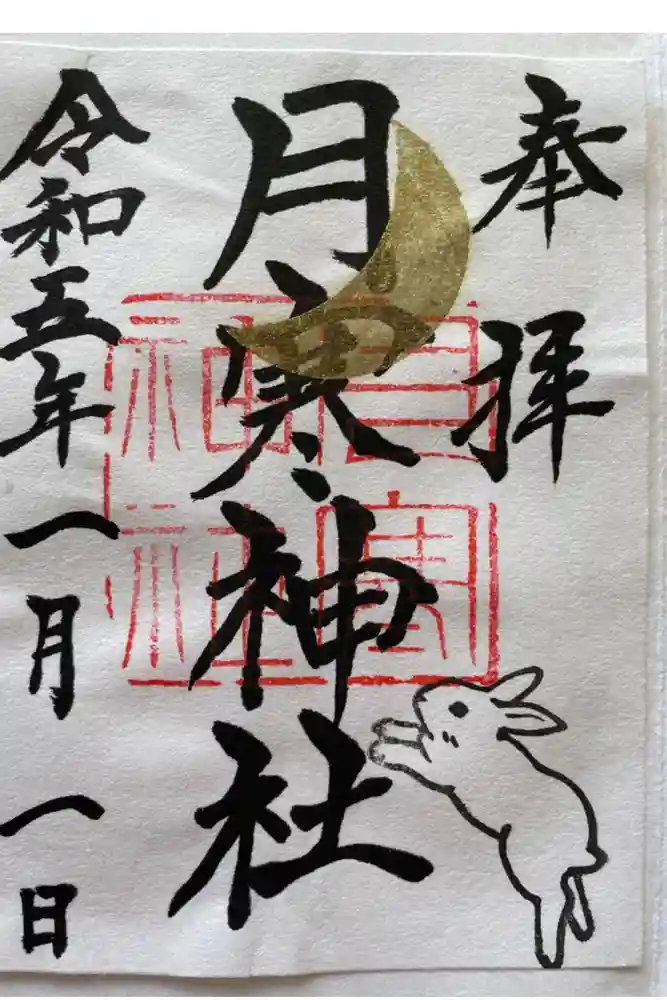 奉拝
月寒神社
月寒神社
令和五年一月一日